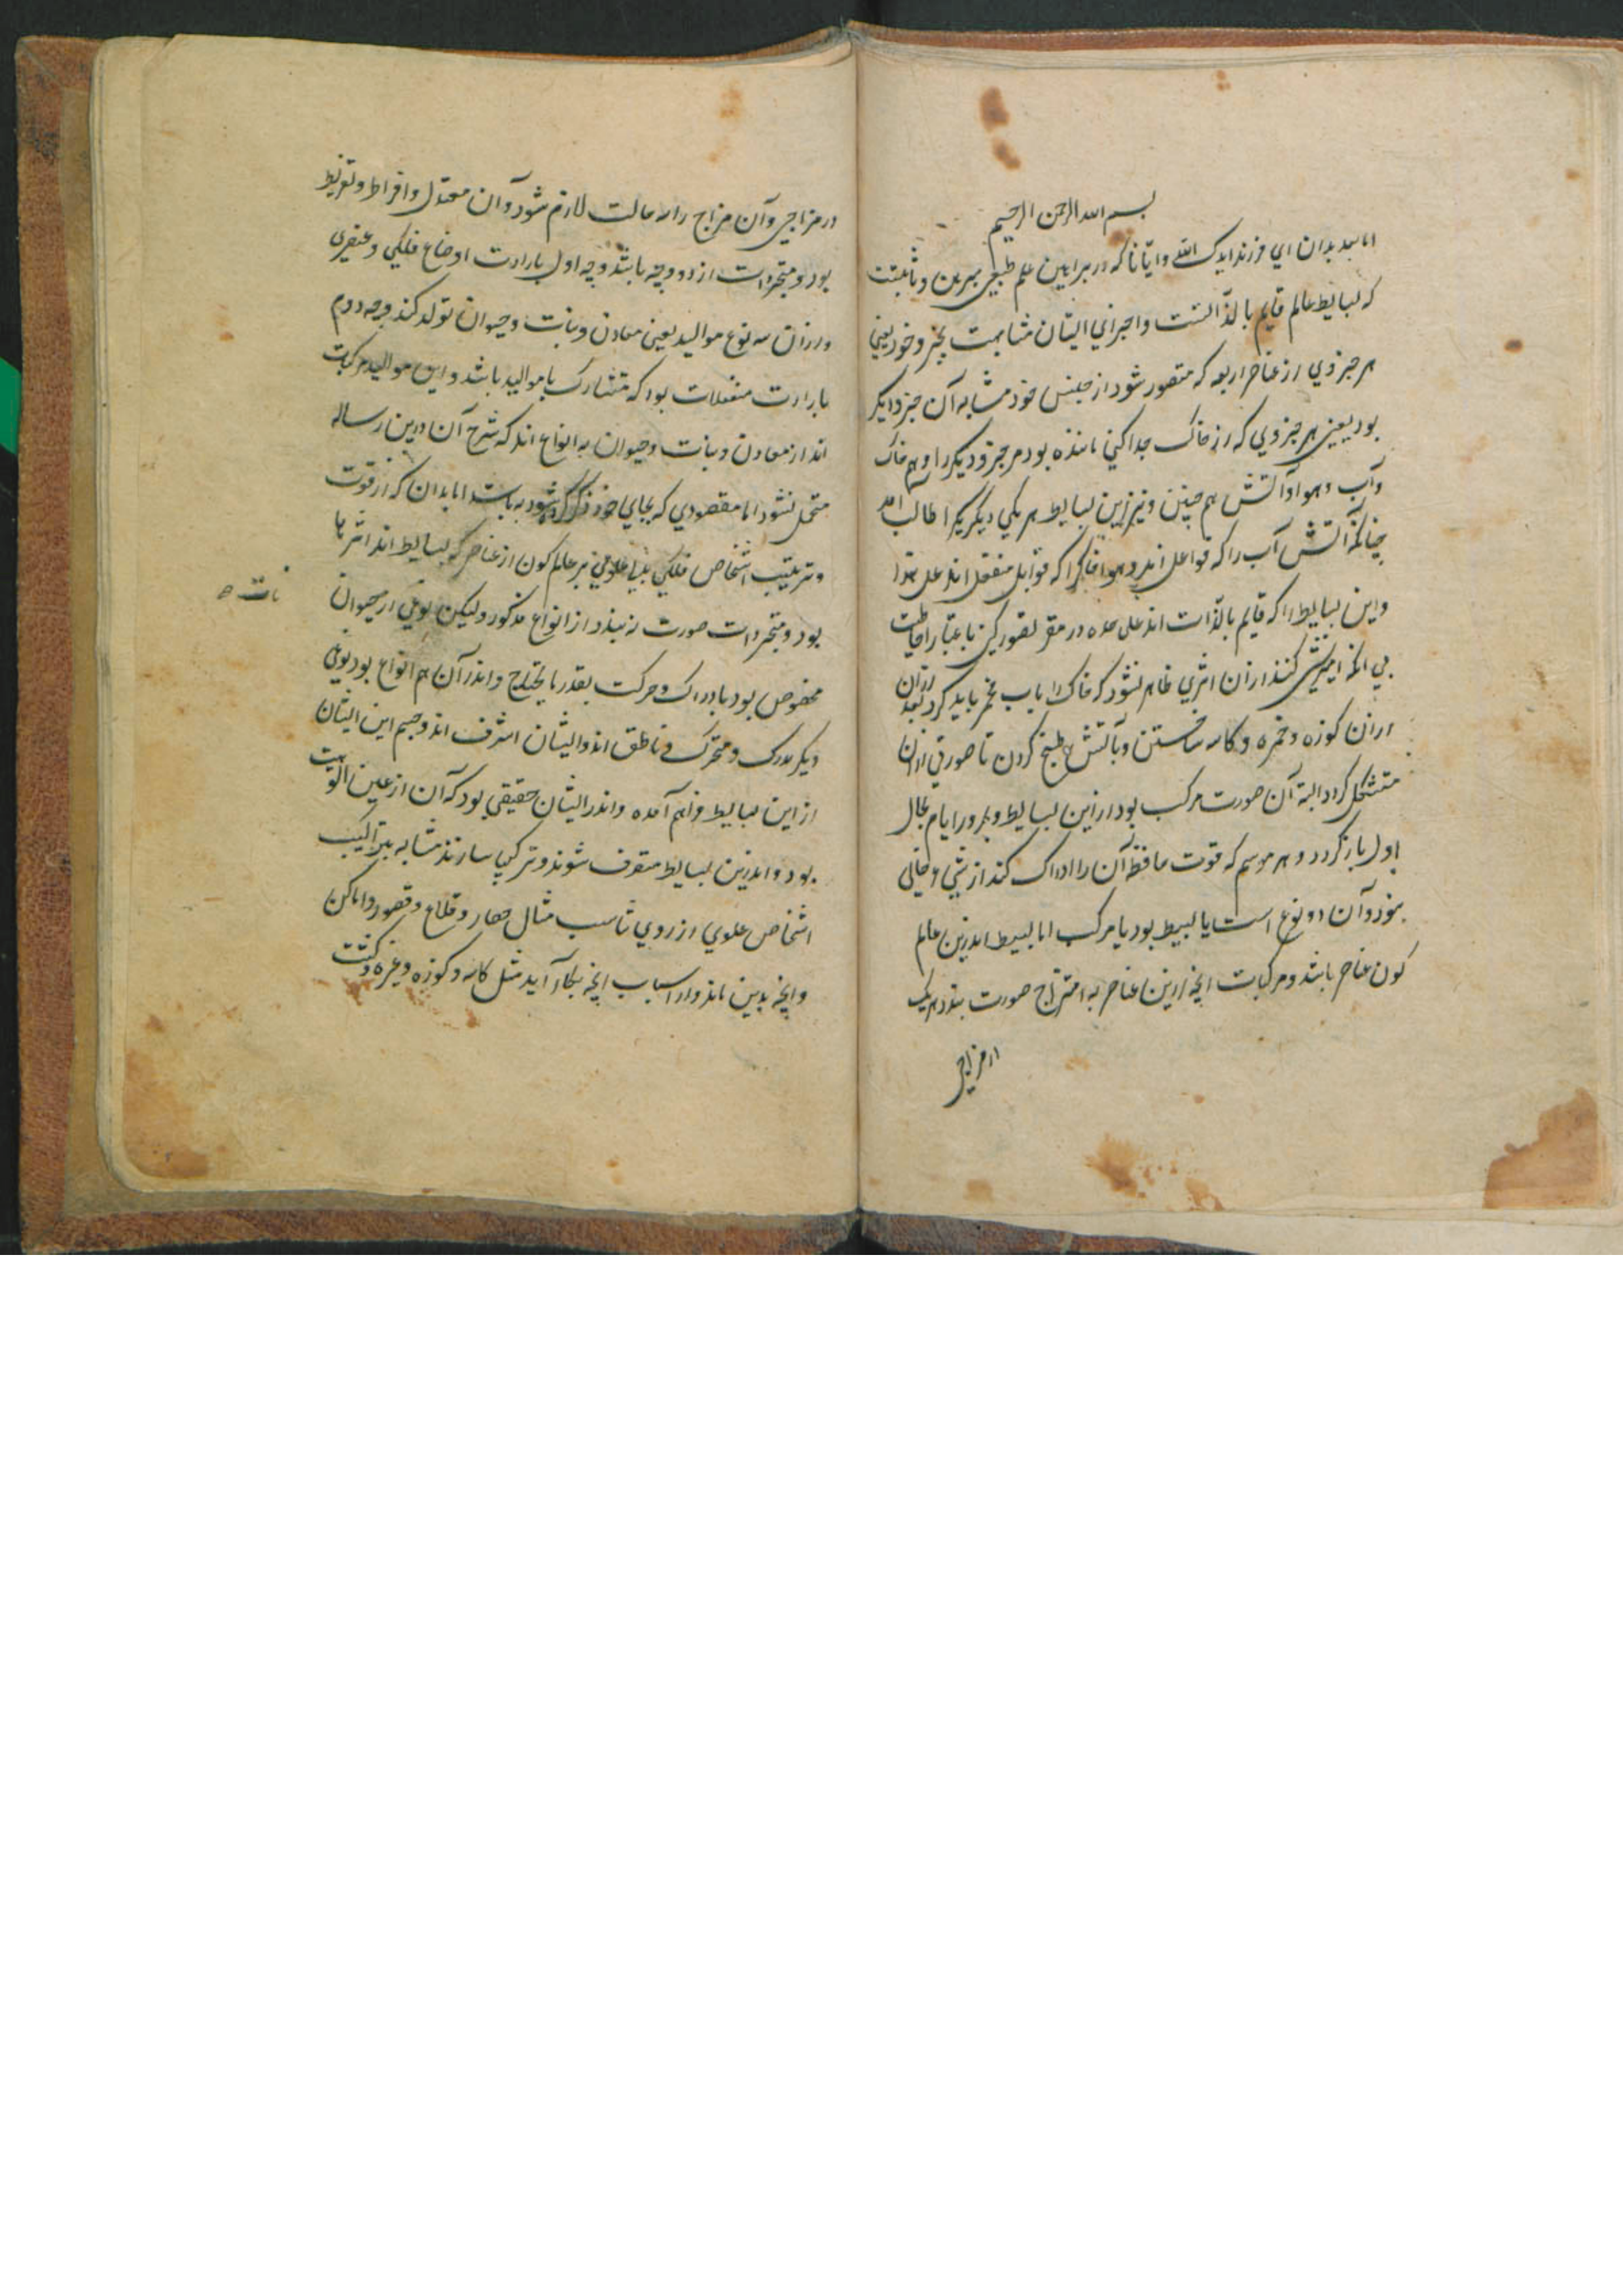 بسم الله الرحمن الرحيم
اما بعد بدان اي فرزند ايدك الله وايانا كه در براهين علم طبيعي مبرهن وثابتست
كه بسايط عالم قايم بالذاتست واجزاي ايشان مشابهت بجزو خود يعني
هر جزوي از عناصر اربعه كه متصور شود از جنس خود مشابه آن جزو ديكر
بود يعني هر جزوي كه از خاك جدا كني ماننده بود مر جزو ديكر را وهم خاك
وآب وهوا وآتش هم چنين ونيز ازين بسايط هر يكي ديكر يكرا طالب اند
چنانكه آتش آب را كه فواعل اند وهوا خاكرا كه قوابل منفعل اند على هذا
واين بسايط را كه قايم بالذات اند على حده در مقر تصور كن باعتبار احاطت
بي آنكه اميزش كنند از ان اثري ظاهر نشود كه خاك را باب مخمر بايد كرد بعد
ازان
از ان كوزه وخمره وكاسه ساختن وبآتش طبخ كردن تا صورتي ازان
متشكل كردد البته آن صورت مركب بود ازين بسايط وبمرور ايام بحال
اول باز كردد وهر موسم كه قوت حافظه آن را ادراك كند از شي وخالي
نبود وآن دو نوع است يا بسيط بود يا مركب اما بسيط اندرين عالم
كون عناصر باشد ومركبات انچه ازين عناصر به امتزاج صورت بندد هر يك
در مزاجي
در مزاجي وآن مزاج را سه حالت لازم شود وآن معتدل وافراط وتفريط
بود ومتحردات از دو وجه باشد وجه اول بارادت اوضاع فلكي وعنصري
وازان سه نوع مواليد يعني معادن ونبات وحيوان تولد كند ووجه دوم
بارادت منفعلات بود كه متشارك با مواليد باشد واين مواليد مركبات
اند از معادن ونبات وحيوان به انواع اند كه شرح آن درين رساله
متحمل نشود اما مقصودي كه بجاي خود ذكر كرده شود به بابت اما بدان كه از قوت
وترتيب اشخاص فلكي علوي بر عالم كون از عناصر كه بسايط اند اثرها
بود ومتحردات صورت پذيرد از انواع مذكور وليكن نوعي از حيوان
نبات ه
مخصوص بود بادراك وحركت بقدر ما يحتاج واندر آن هم انواع بود نوعي
ديكر مدرك ومتحرك وناطق اند وايشان اشرف اند وجسم اين ايشان
از اين بسايط فراهم آمده واندر ايشان حقيقي بود كه آن از عين الوهيت
بود واندرين بسايط متصرف شوند وتركيبها سازند مشابه بتراكيب
اشخاص علوي از روي تناسب مثال حصار وقلاع وقصور واماكن
وانچه بدين ماند واز اسباب انچه بكار آيد مثل كاسه وكوزه وغيره وكشت